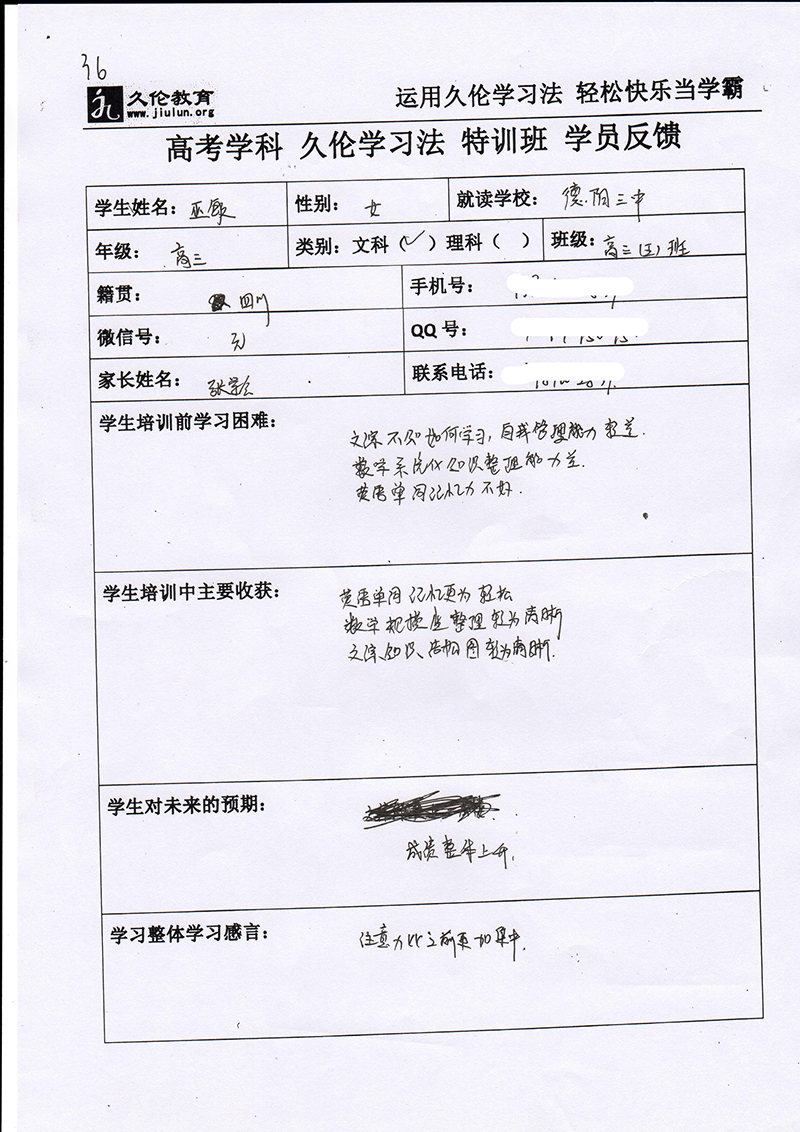 36
久伦教育
www.jiulun.org
运用久伦学习法 轻松快乐当学霸
高考学科 久伦学习法 特训班 学员反馈
学生姓名：巫
性别：女
就读学校：德阳三中
年级：高三
类别：文科（✓）理科（ ）
班级：高三(五)班
籍贯：四川
手机号：
微信号：无
QQ号：
家长姓名：张
联系电话：
学生培训前学习困难：
文综不知如何学习，自我管理能力较差.
数学系统化知识整理能力差.
英语单词记忆力不好.
学生培训中主要收获：
英语单词记忆更为轻松
数学把握整理较为清晰
文综知识、结构图较为清晰.
学生对未来的预期：
成绩整体上升.
学习整体学习感言：
注意力比之前更加集中.